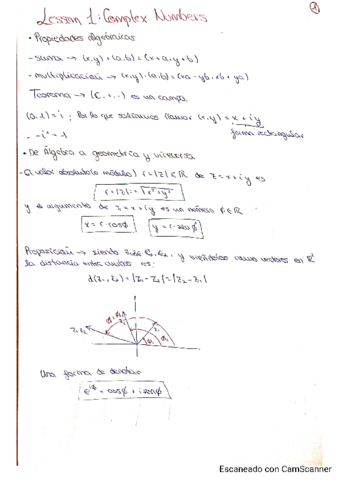 Lesson 1: Complex Numbers
• Propiedades algebraicas
- suma → (x,y)+(a,b)=(x+a,y+b)
- multiplicación → (x,y)·(a,b)=(xa-yb,xb+ya)
Teorema → (C,+,·) es un campo
(0,1)=i ; Por lo que solíamos llamar (x,y)=x+iy
forma rectangular
• De Álgebra a geometría y viceversa
- El valor absoluto (o módulo) r=|z|∈ℝ de z=x+iy es
r=|z|:=√x²+y²
y el argumento de z=x+iy es un número ϕ∈ℝ
x=r·cosϕ y=r·senϕ
Proposición → siendo
vectores en ℝ²
la distancia entre ambos es:
d(z₁,z₂)=|z₁-z₂|=|z₂-z₁|
Una forma de denotar
e^iϕ=cosϕ+isenϕ
Escaneado con CamScanner